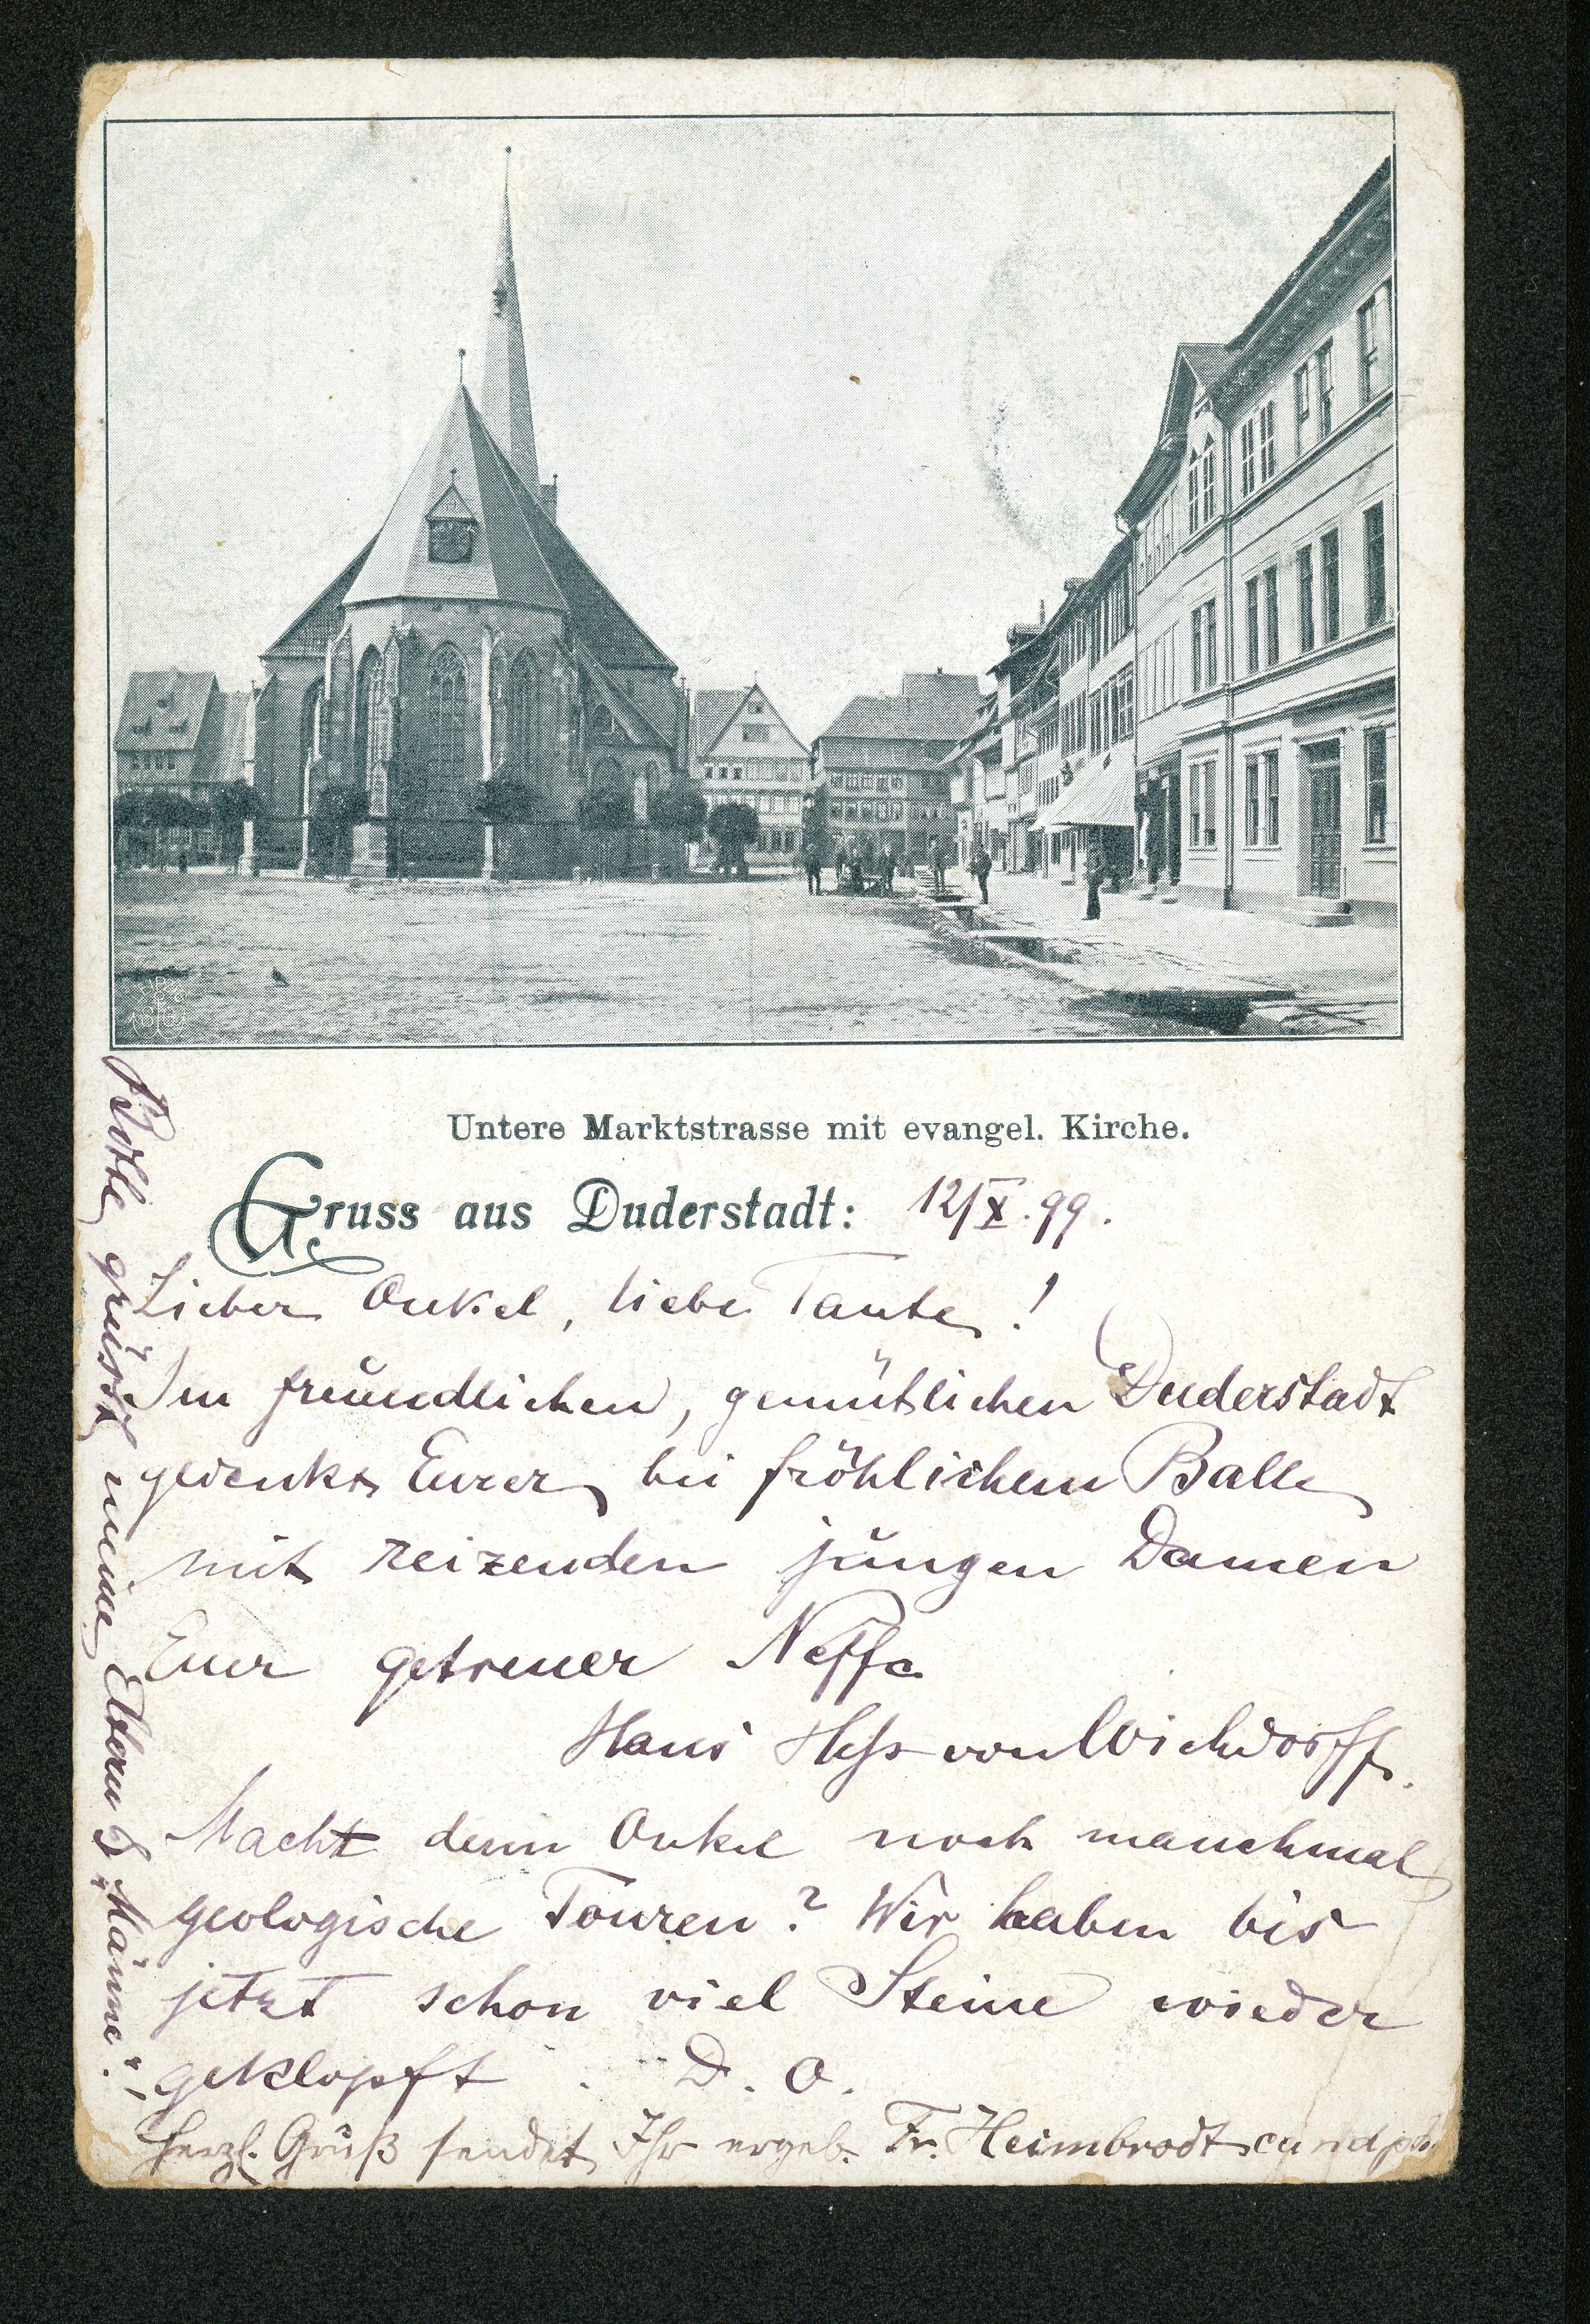 Untere Marktstrasse mit evangel. Kirche.
Gruss aus Duderstadt: 12/X.99.
Lieber Onkel, liebe Tante!
Im freundlichen, gemütlichen Duderstadt
gedenkt Eurer bei fröhlichem Balle
mit reizenden jungen Damen
Euer getreuer Neffe
Hans Hess von Wichdorff.
Macht denn Onkel noch manchmal
geologische Touren? Wir haben bis
jetzt schon viel Steine wieder
geklopft. D. O.
Herzl. Gruß sendet Ihr ergeb. Fr. Heimbrodt cand ph
grüsst meine Eltern & „Männe“.